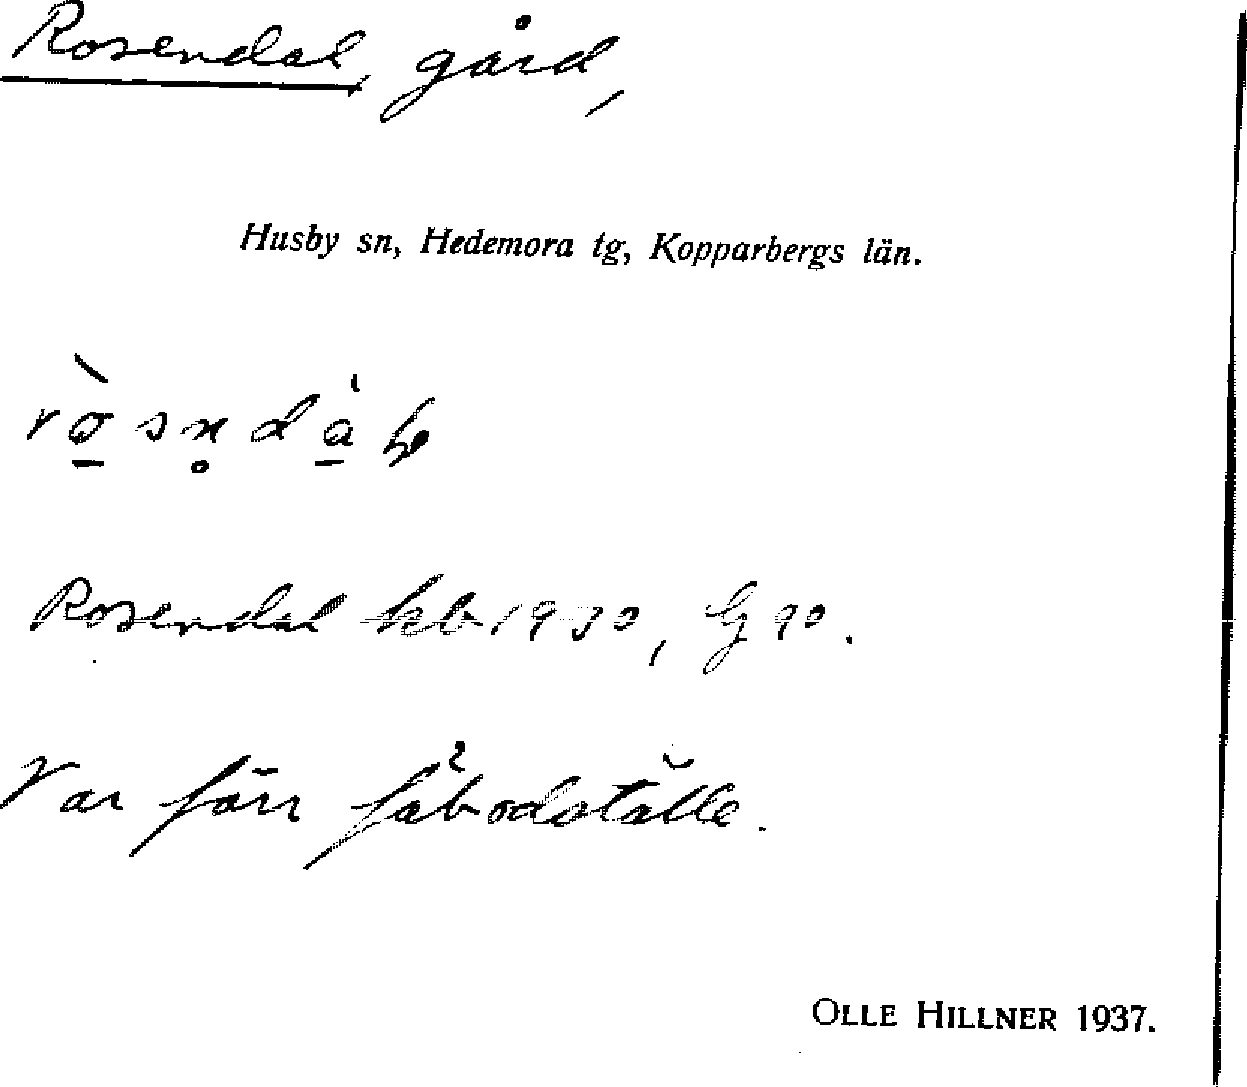 Rosendal, gård,
Husby sn, Hedemora tg, Kopparbergs län.
Rosendal kb 1930, G 90.
Var förr fäbodställe.
OLLE HILLNER 1937.